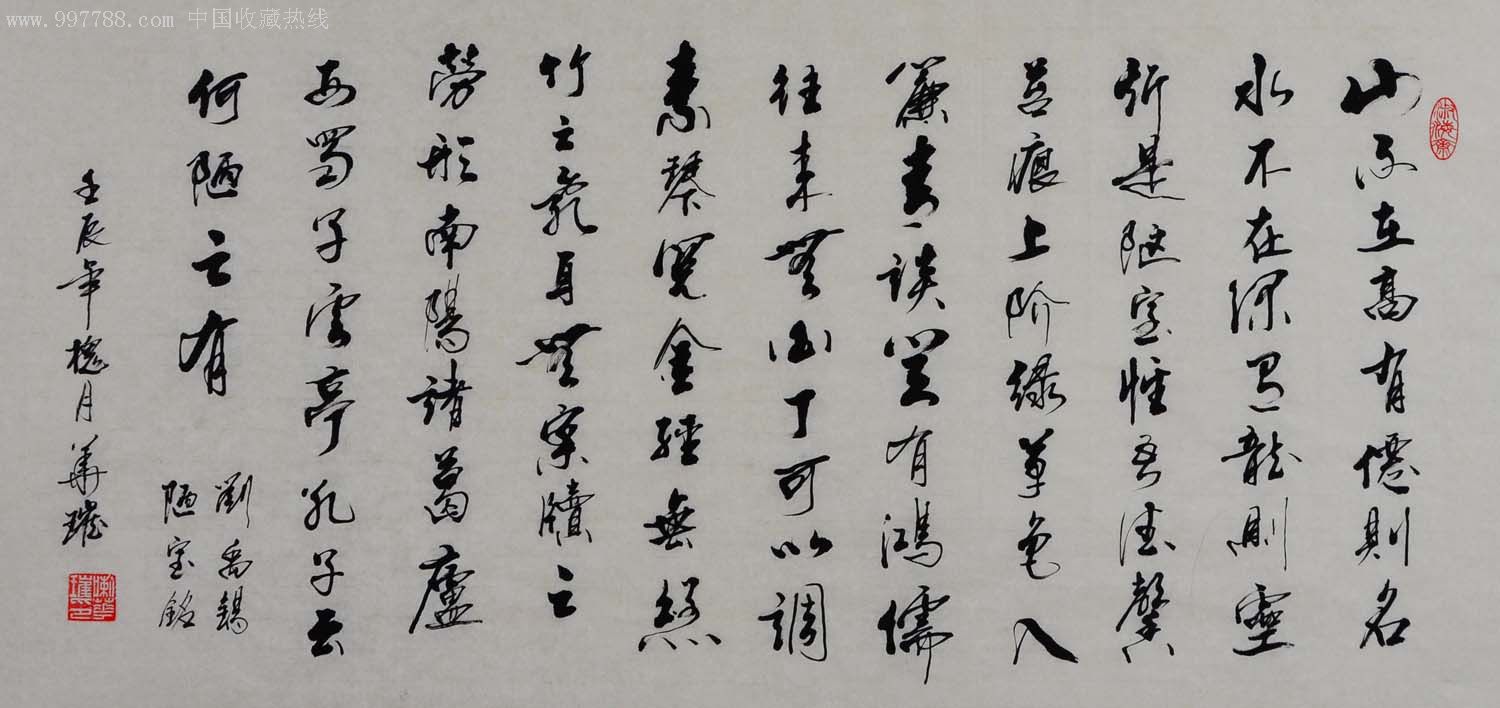 www.997788.com 中国收藏热线
山不在高有僊則名
水不在深有龍則靈
斯是陋室惟吾德馨
苔痕上阶緑草色入
簾青談笑有鴻儒
往来無白丁可以調
素琴閲金經無絲
竹之亂耳無案牘之
勞形南陽諸葛廬
西蜀子雲亭孔子云
何陋之有
劉禹錫
陋室銘
壬辰年槐月華璀